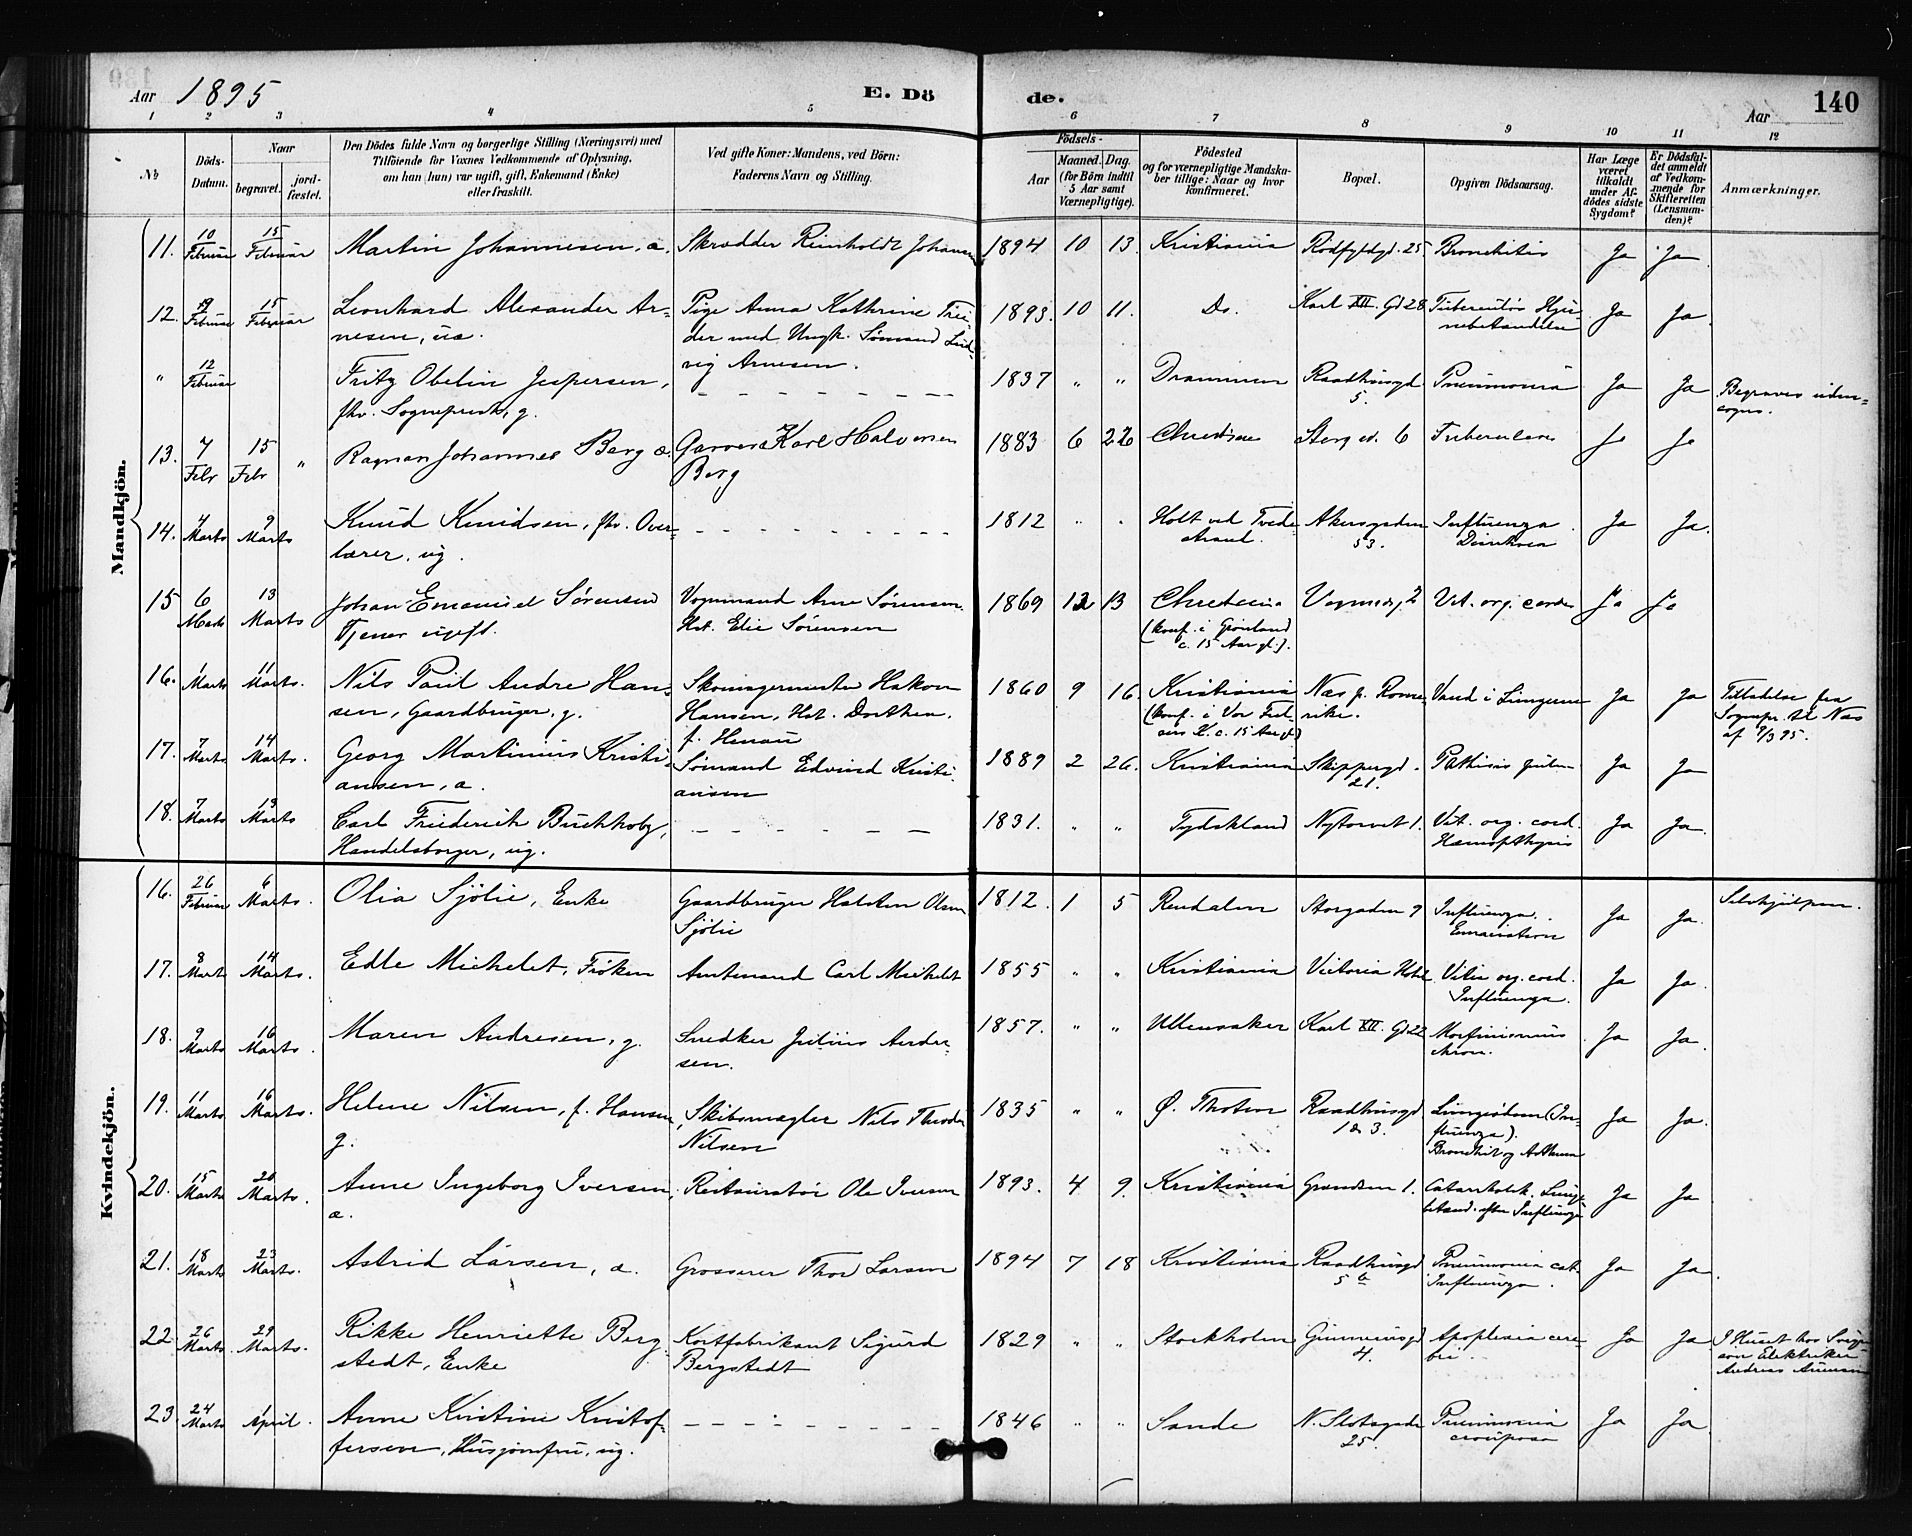 Aar 1895
E. Dö
de.
Aar
140
1 2 3 4 5 6 7 8 9 10 11 12
№
Döds-
Datum.
Naar
begravet.
jord-
fæstet.
Den Dödes fulde Navn og borgerlige Stilling (Næringsvei) med
Tilföiende for Voxnes Vedkommende af Oplysning,
om han (hun) var ugift, gift, Enkemand (Enke)
eller fraskilt.
Ved gifte Koner: Mandens, ved Börn:
Faderens Navn og Stilling.
Födsels-
Aar
Maaned. Dag.
(for Börn indtil
5 Aar samt
Værnepligtige).
Födested
og for værnepligtige Mandska-
ber tillige: Naar og hvor
konfirmeret.
Bopæl.
Opgiven Dödsaarsag.
Har Læge
været
tilkaldt
under Af-
dödes sidste
Sygdom?
Er Dödsfal-
det anmeldt
af Vedkom-
mende for
Skifteretten
(Lensman-
den)?
Anmærkninger.
Mandkjön.
11. 10 Februar 15 Februar Martin Johannesen, a. Skrædder Reinholdt Johannesen 1894 10 13 Kristiania Rødfyldgd. 25 Bronchitis Ja Ja
12. 9 Februar 15 Februar Leonhard Alexander Ar-
nesen, ua. Pige Anna Kathrine
der med Ungk. Sømand Lud-
vig Arnesen. 1893. 10 11. Do. Karl XII. Gd 28 Tuberkuløs Hjer-
nebetændelse Ja Ja
" 12 Februar Fritz Obelin Jespersen,
fhv. Sogneprest, g. 1837 " " Drammen Raadhusgd
5. Pneumonia Ja Ja Begraves uden-
sogns.
13. 7 Febr 15 Febr " Ragnar Johannes Berg æ. Garver Karl Halvorsen
Berg 1883 6 22 Storg 6 Tuberculose Ja Ja
14. 4 Marts 9 Marts Knud Knudsen, fhv. Over-
lærer, ug. 1812 " " Holt ved Tvede-
strand. Akersgaden
53. Influenza
Diarrhoea Ja Ja.
15 6 Marts 13 Marts Johan Emanuel Sørensen
Tjener ugift. Vognmand Arne Sørensen
Hst. Elie Sørensen 1869 12 13
(konf. i Grønland
c. 15 Aar gl.). Vognmdg. 2 Vit. org. cordis Ja Ja
16. 1 Marts 11 Marts. Nils Paul Andre Han-
sen, Gaardbruger, g. Skomagermester Hakon
Hansen, Hst. Dorthea
f. 1860 9 16. Kristiania
(konf. i Vor Frel-
sers K. c. 15 Aar gl.) Næs p. Rome-
rike. Vand i Lungerne Ja Ja Tilladelse fra
Sognepr. til Næs
af 9/3 95.
17. 7 Marts 14 Marts. Georg Martinius Kristi-
ansen, a. Sømand Edvind Kristi-
ansen 1889 2 26. Kristiania Skippergd.
21. Pthisis pulm Ja Ja
18. 7 Marts 13 Marts Carl Friederich Buchholz,
Handelsborger, ug. 1831. " " Tydskland Nytorvet 1. Vit. org. cord.
Hæmopthysis Ja Ja.
Kvindekjön.
16. 26 Februar 6 Marts. Olia Sjölie, Enke Gaardbruger Halsten Olsen
Sjölie 1812. 1 5 Rendalen Storgaden 9 Influenza.
Emaciation Ja Ja. Selvhjulpen.
17. 8 Marts 14 Marts. Edle Michelet, Frøken Amtmand Carl Michelet 1855 " " Kristiania Victoria Hotel Vitia org. cord.
Influenza. Ja Ja.
18. 9 Marts 16 Marts. Maren Andresen, g. Snedker Julius Andre-
sen. 1857. " " Ullensaker Karl XII. Gd 22 Morfinismus
chron. Ja Ja.
19. 11 Marts 16 Marts. Helene Nilsen, f. Hansen,
g. Skibsmægler Nils Theodor
Nilsen 1835 " " Ø. Thoten Raadhusgd
1 & 3. Lungeödem (In-
fluenza).
Bronchit og Asthma Ja Ja.
20. 15 Marts 20 Marts. Anne Ingeborg Iversen,
æ. Restauratør Ole Iversen 1893. 4 9. Kristiania Grændsen 1. Catarrhalsk. Lunge-
betænd. efter Influenza Ja Ja
21. 18 Marts 23 Marts. Astrid Larsen, æ. Grosserer Thor Larsen 1894 7 18 Kristiania Raadhusgd
5 b Pneumonia cat.
Influenza. Ja Ja.
22 26 Marts 29 Marts. Rikke Henriette Berg-
stedt, Enke Kortfabrikant Sigurd
Bergstedt 1829 " " Stockholm
4. Apoplexia cere-
bri Ja Ja I Huset hos Sviger-
søn Elektriker
Andreas
23 24 Marts 1 April. Anne Kristine Kristof-
fersen, Husjomfru, ug. 1846 " " Sande N. Slotsgade
25. Pneumonia
crouposa Ja Ja